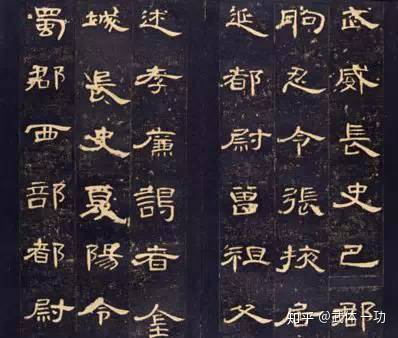 武威長史巴郡
朐忍令張掖居
延都尉曾祖父
述孝廉謁者金
城長史夏陽令
蜀郡西部都尉
知乎 @武体一功